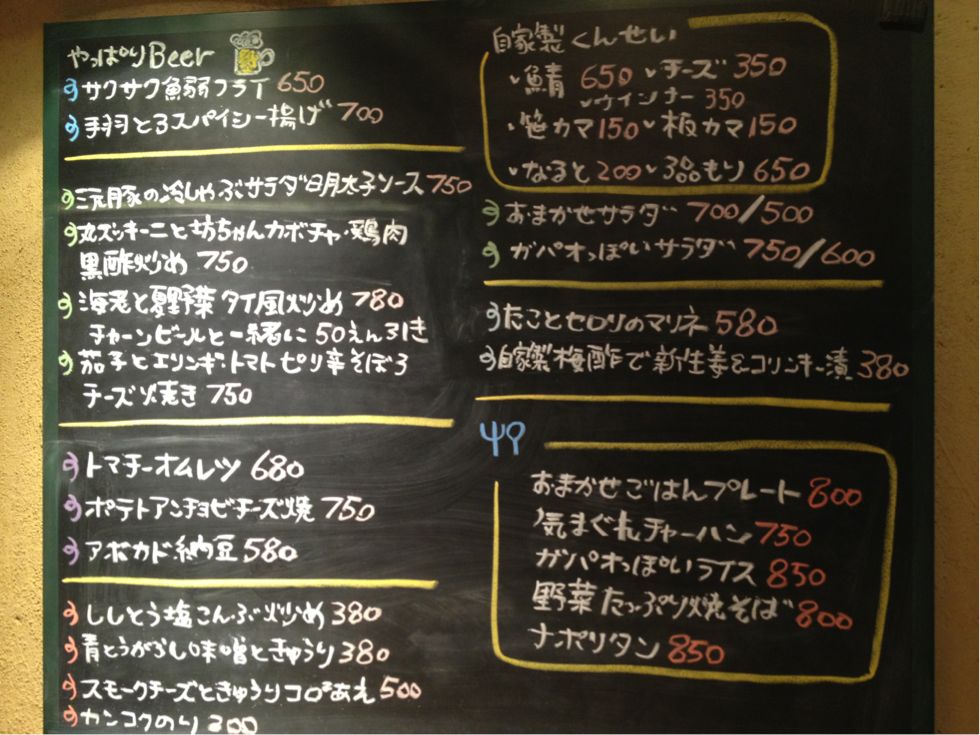 やっぱりBeer
サクサク魚弱フライ 650
手羽とろスパイシー揚げ 700
三元豚の冷しゃぶサラダ 明太子ソース 750
丸ズッキーニと坊ちゃんカボチャ・鶏肉
黒酢炒め 750
海老と夏野菜 タイ風炒め 780
チャーンビールと一緒に 50えん引き
茄子とエリンギ・トマト ピリ辛そぼろ
チーズ焼き 750
トマチーオムレツ 680
ポテトアンチョビチーズ焼 750
アボカド納豆 580
ししとう塩こんぶ炒め 380
青とうがらし味噌ときゅうり 380
スモークチーズときゅうりコロコロあえ 500
カンコクのり 200
自家製くんせい
鯖 650 チーズ 350
ウインナー 350
笹カマ 150 板カマ 150
なると 200 3品もり 650
おまかせサラダ 700/500
ガパオっぽいサラダ 750/600
たことセロリのマリネ 580
自家製梅酢で新生姜&コリンキー漬 380
おまかせごはんプレート 800
気まぐれチャーハン 750
ガパオっぽいライス 850
野菜たっぷり焼そば 800
ナポリタン 850